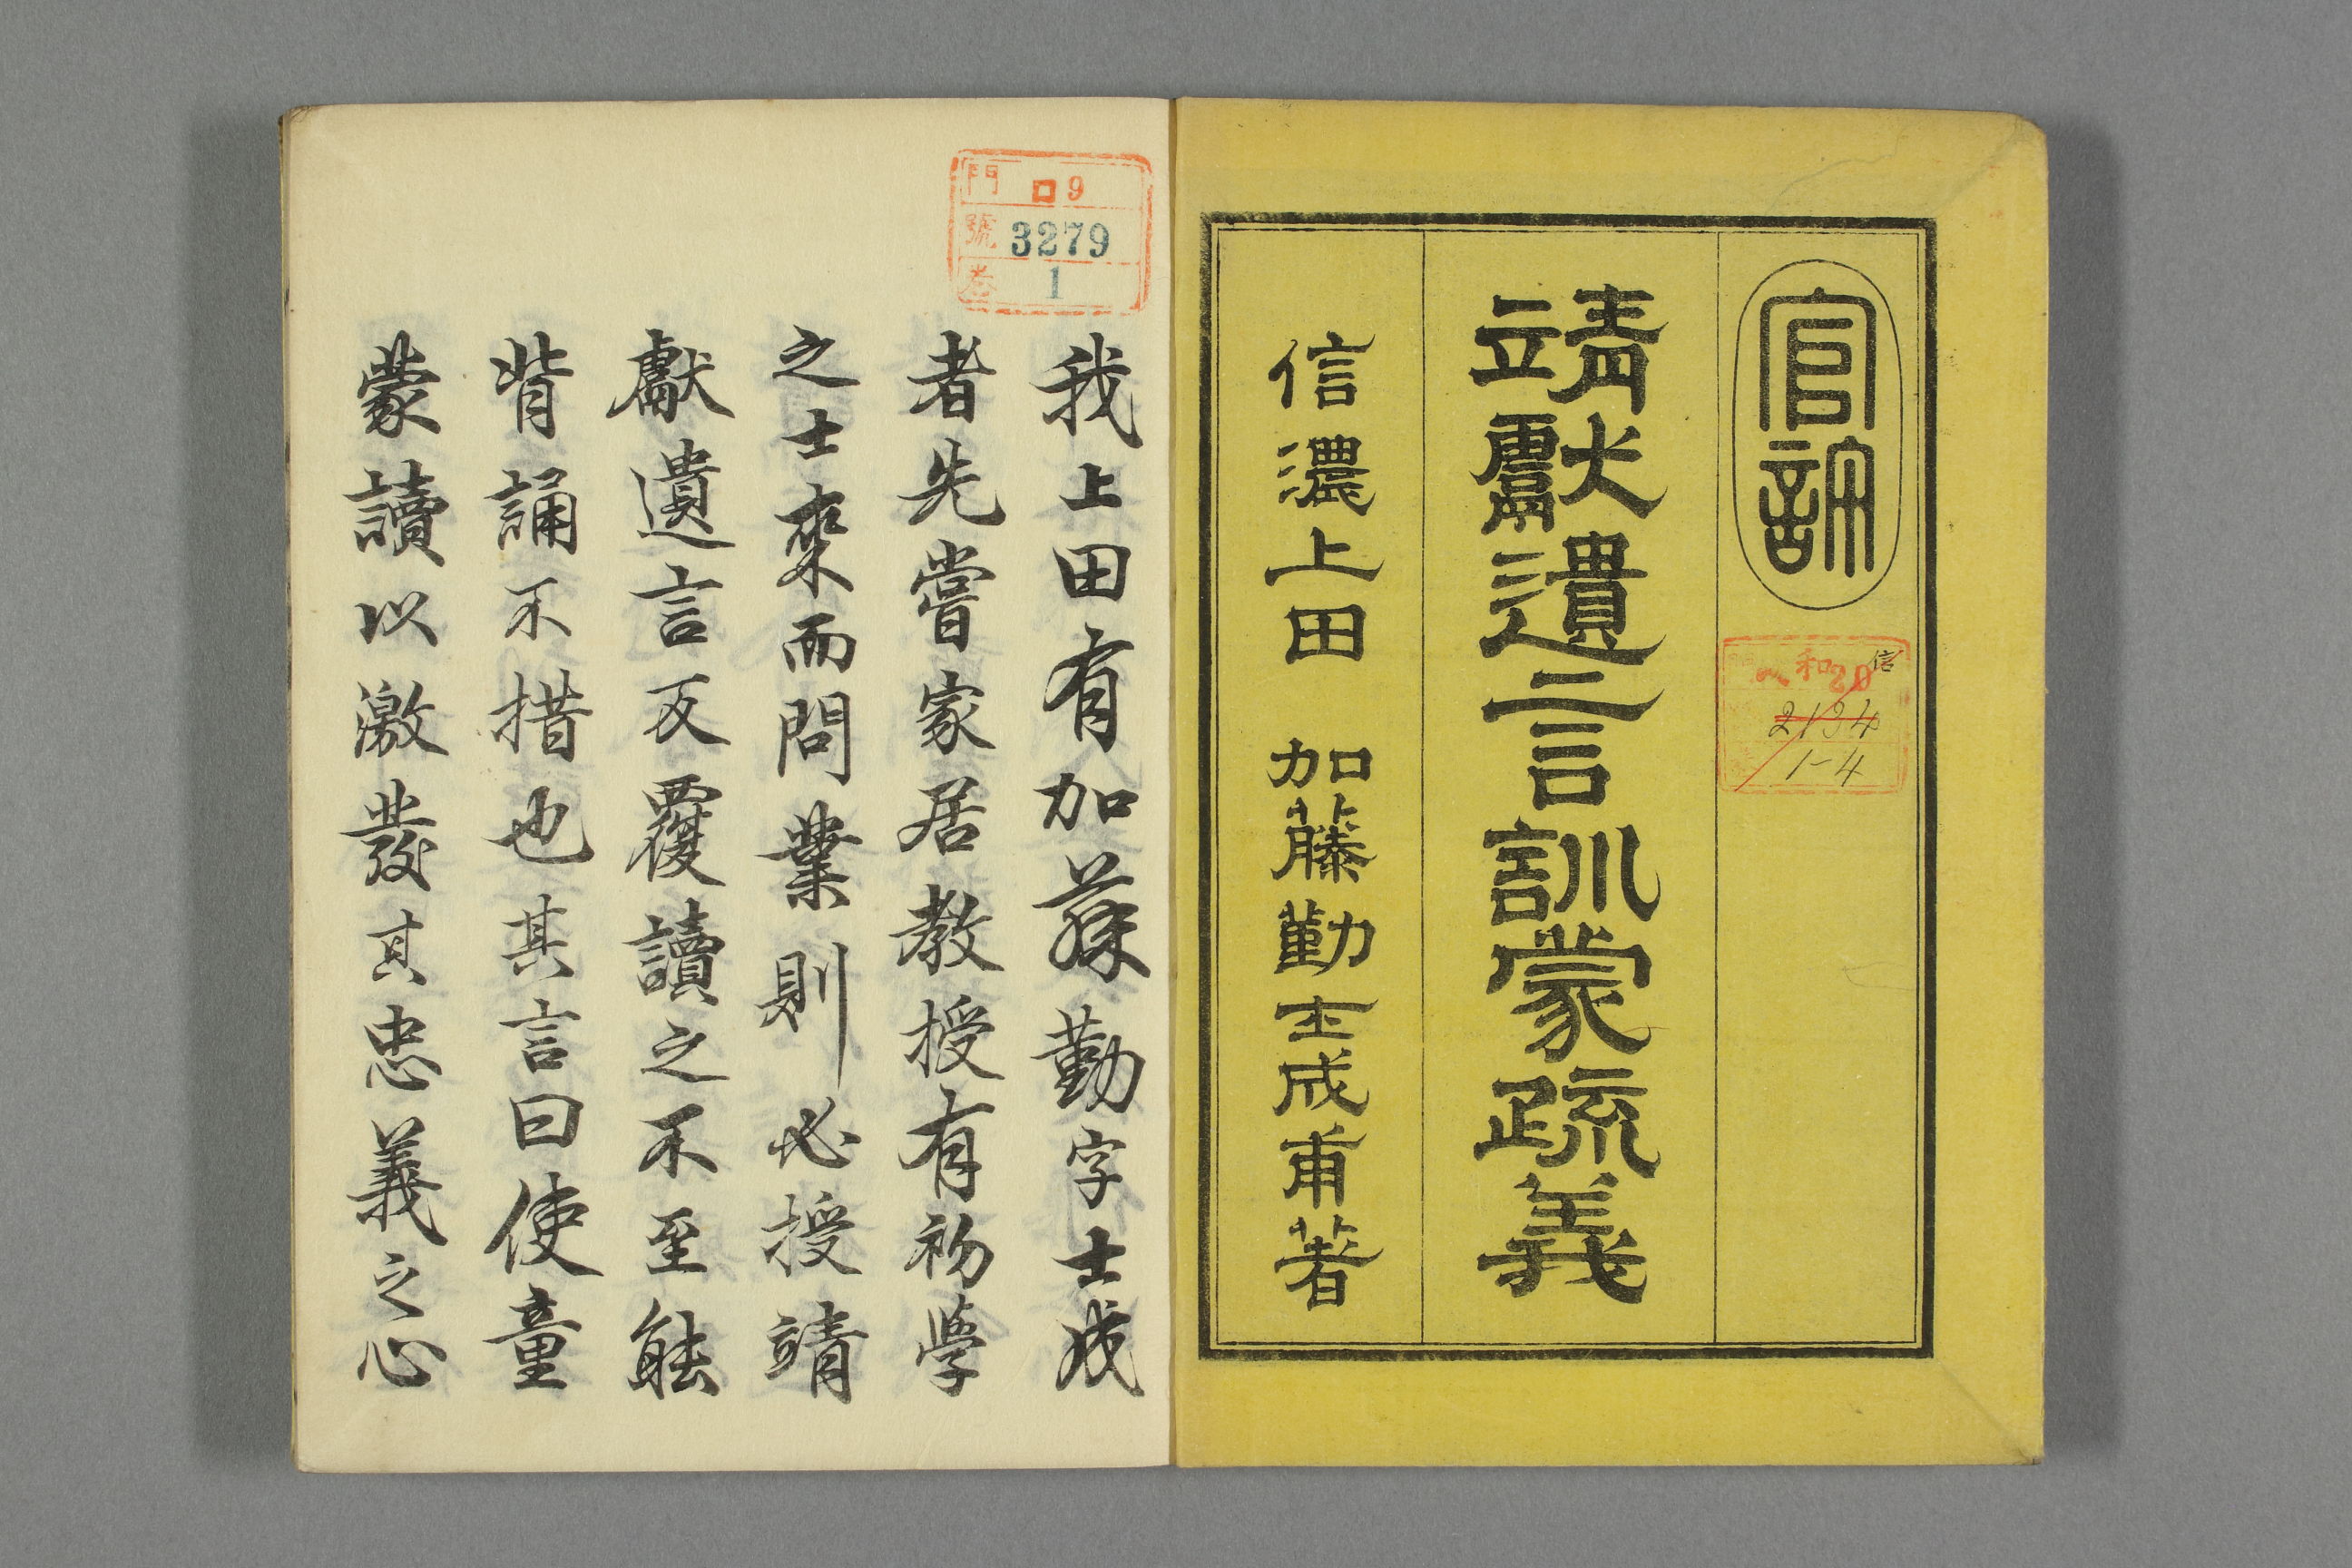 官許
信
和20
2134
1-4
靖獻遺言訓蒙疏義
信濃上田 加藤勤士成甫著
門 口9
號 3279
卷 1
我上田有加藤勤字士成
者先嘗家居教授有初學
之士來而問業則必授靖
獻遺言反覆讀之不至能
背誦不措也其言曰使童
蒙讀以激發其忠義之心